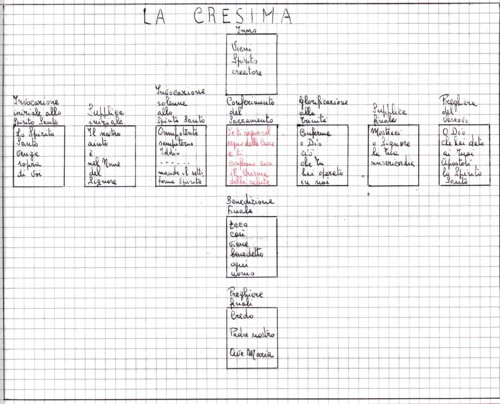 LA CRESIMA
Inno
Vieni
Spirito
creatore
Invocazione
iniziale allo
Spirito Santo
Lo Spirito
Santo
venga
sopra
di voi
Supplica
iniziale
Il nostro
aiuto
è
nel Nome
del
Signore
Invocazione
solenne
allo
Spirito Santo
Onnipotente
sempiterno
Iddio
.......
manda il sett
forme Spirito
Conferimento
del
Sacramento
Io ti segno col
segno della Croce
e ti
confermo con
il Crisma
della salute
Glorificazione
alla
Trinità
Conferma
o Dio
ciò
che Tu
hai operato
in noi
Supplica
finale
Mostraci
o Signore
la tua
misericordia
Preghiera
del
Vescovo
O Dio
che hai dato
ai tuoi
Apostoli
lo Spirito
Santo
Benedizione
finale
Ecco
così
viene
benedetto
ogni
uomo
Preghiere
finali
Credo
Padre nostro
Ave Maria